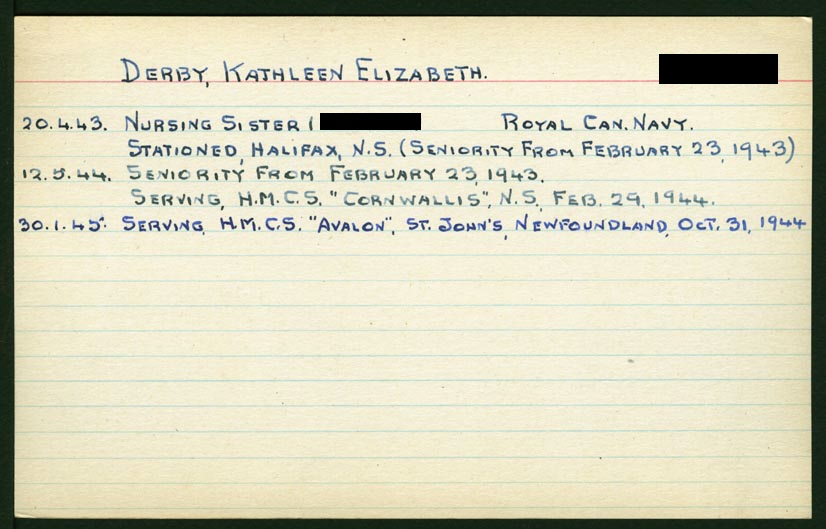 DERBY, KATHLEEN ELIZABETH.
20.4.43. NURSING SISTER ( ROYAL CAN. NAVY.
STATIONED, HALIFAX, N.S. (SENIORITY FROM FEBRUARY 23, 1943)
12.5.44. SENIORITY FROM FEBRUARY 23, 1943.
SERVING, H.M.C.S. "CORNWALLIS", N.S., FEB. 29, 1944.
30.1.45. SERVING, H.M.C.S. "AVALON", ST. JOHN'S, NEWFOUNDLAND, OCT. 31, 1944